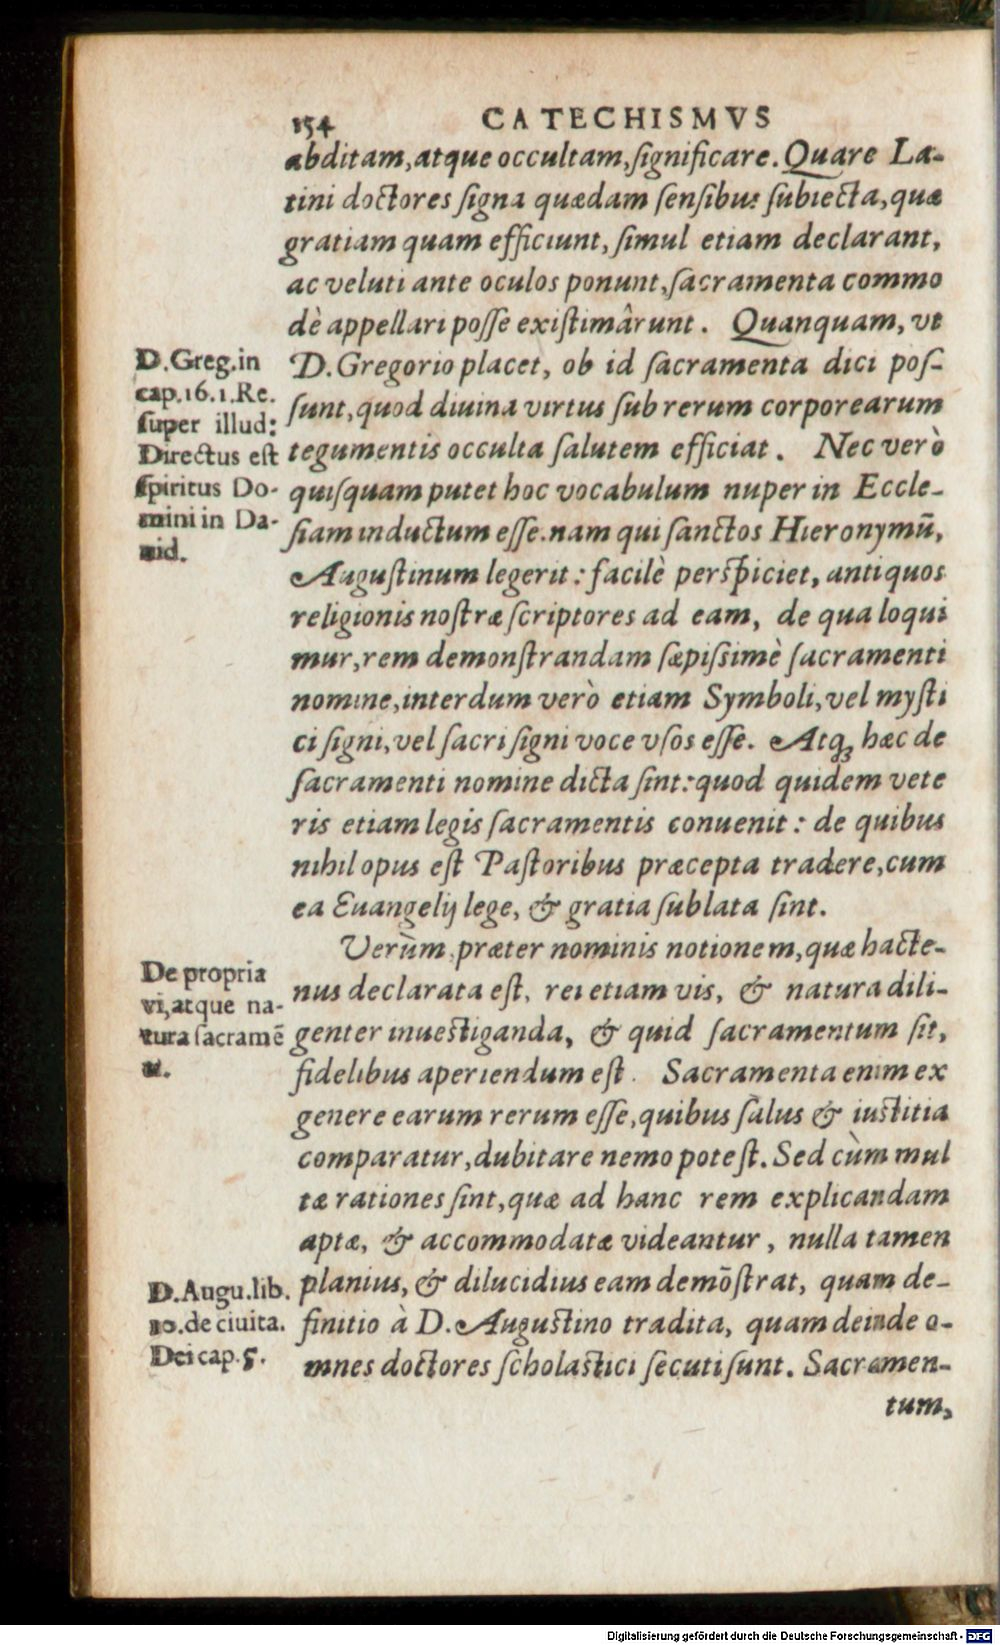 154 CATECHISMVS
abditam, atque occultam, ſignificare. Quare La-
tini doctores ſigna quædam ſenſibus ſubiecta, quæ
gratiam quam efficiunt, ſimul etiam declarant,
ac veluti ante oculos ponunt, ſacramenta commo
dè appellari poſſe exiſtimârunt. Quanquam, vt
D. Gregorio placet, ob id ſacramenta dici poſ-
ſunt, quod diuina virtus ſub rerum corporearum
tegumentis occulta ſalutem efficiat. Nec verò
quiſquam putet hoc vocabulum nuper in Eccle-
ſiam inductum eſſe. nam qui ſanctos Hieronymū,
Auguſtinum legerit: facilè perſpiciet, antiquos
religionis noſtræ ſcriptores ad eam, de qua loqui
mur, rem demonſtrandam ſæpiſsimè ſacramenti
nomine, interdum verò etiam Symboli, vel myſti
ci ſigni, vel ſacri ſigni voce vſos eſſe. Atq; hæc de
ſacramenti nomine dicta ſint: quod quidem vete
ris etiam legis ſacramentis conuenit: de quibus
nihil opus eſt Paſtoribus præcepta tradere, cum
ea Euangelij lege, & gratia ſublata ſint.
Verùm, præter nominis notionem, quæ hacte-
nus declarata eſt, rei etiam vis, & natura dili-
genter inueſtiganda, & quid ſacramentum ſit,
fidelibus aperiendum eſt. Sacramenta enim ex
genere earum rerum eſſe, quibus ſalus & iuſtitia
comparatur, dubitare nemo poteſt. Sed cùm mul
tæ rationes ſint, quæ ad hanc rem explicandam
aptæ, & accommodatæ videantur, nulla tamen
planius, & dilucidius eam demōſtrat, quam de-
finitio à D. Auguſtino tradita, quam deinde o-
mnes doctores ſcholaſtici ſecuti ſunt. Sacramen-
tum,
D. Greg. in
cap. 16. 1. Re.
ſuper illud:
Directus eſt
ſpiritus Do-
mini in Da-
uid.
De propria
vi, atque na-
tura ſacramē
ti.
D. Augu. lib.
10. de ciuita.
Dei cap. 5.
Digitalisierung gefördert durch die Deutsche Forschungsgemeinschaft - DFG